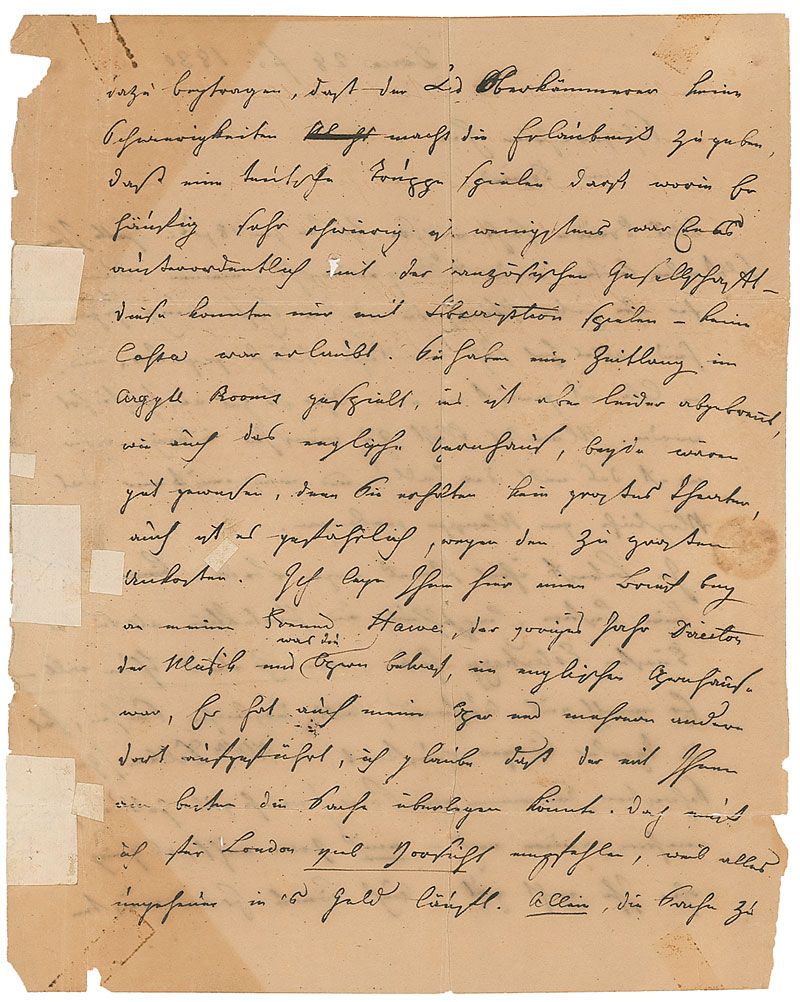 dazu beytragen, daß der Lord Oberkämmerer keine
Schwierigkeiten macht die Erlaubniß zu geben,
daß eine teutsche Truppe spielen darf worin Er
häufig sehr schwierig ist wenigstens war Er es
ausserordentlich mit der französischen Gesellschaft –
diese konnten nur mit Subscription spielen – keine
Cassa war erlaubt. Sie haben eine Zeitlang im
Argyll Rooms gespielt, das ist aber leider abgebrannt,
wie auch das englische Opernhaus, beyde wären
gut gewesen, denn Sie erhalten kein großes Theater,
auch ist es gefährlich, wegen den zu großen
Unkosten. Ich lege Ihnen hier einen Brief bey
an meinen Freund Hawes, der voriges Jahr Director
der Musik und was die Opern betraf, im englischen Opernhause
war, Er hat auch meine Oper und mehrere andere
dort aufgeführt, ich glaube daß der mit Ihnen
am besten die Sache überlegen könnte. doch muß
ich für London viel Vorsicht empfehlen, weil alles
ungeheuer in's Geld läuft. Allein, die Sache zu